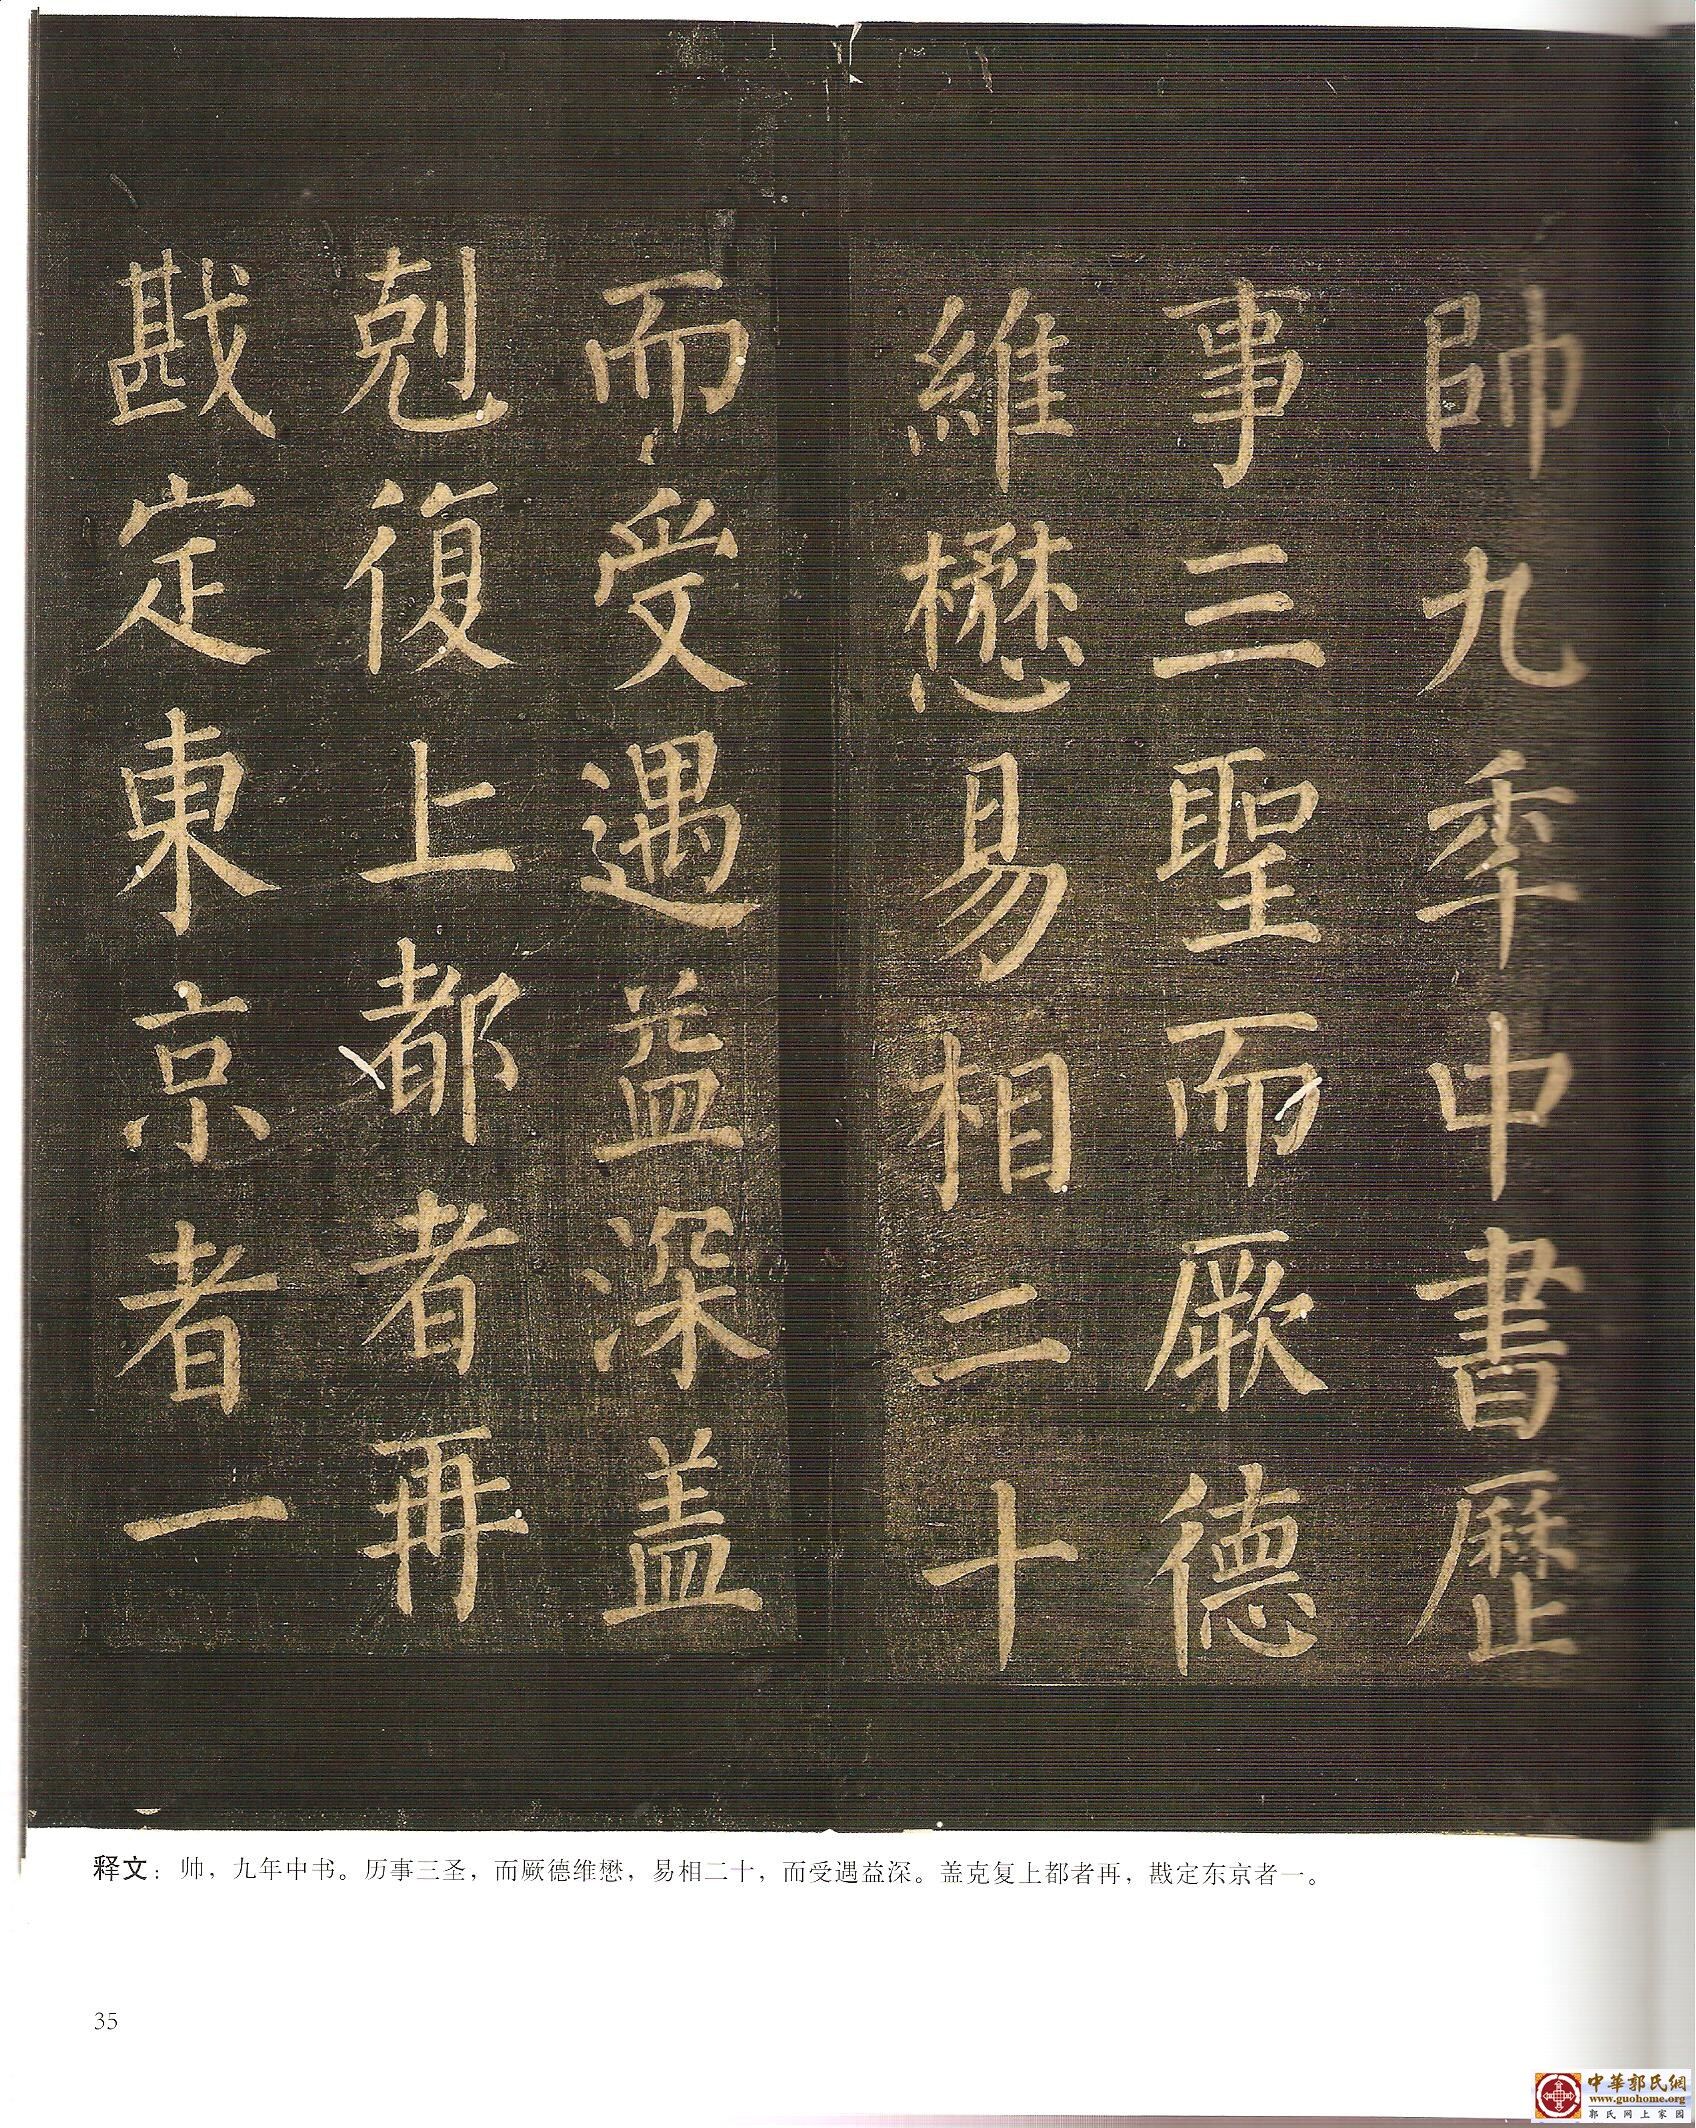 帥九秊中書歷
事三聖而厥德
維懋易相二十
而受遇益深盖
剋復上都者再
戡定東京者一
释文：帅，九年中书。历事三圣，而厥德维懋，易相二十，而受遇益深。盖克复上都者再，戡定东京者一。
35
中華郭氏網
www.guohome.org
郭氏网上家园